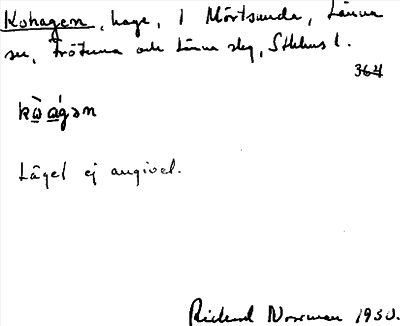 Kohagen, hage, 1 Mörtsunda, Länna
sn, Frötuna och Länna slg, Sthlms l.
364
kὼág>n
Läget ej angivet.
Rickard Norrman 1930.